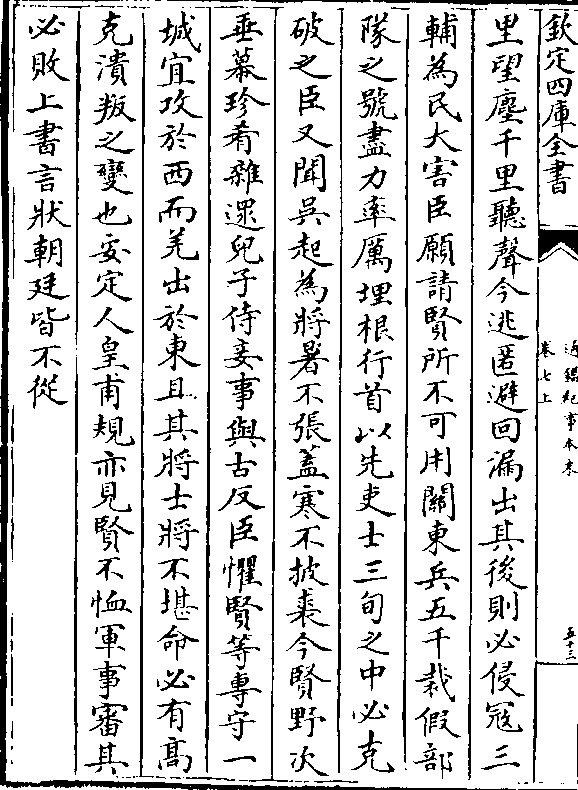 欽定四庫全書
通鑑紀事本末
卷七上
五十三
里望塵千里聽聲今逃匿避回漏出其後則必侵冦三
輔為民大害臣願請賢所不可用關東兵五千裁假部
隊之號盡力率厲埋根行首以先吏士三旬之中必克
破之臣又聞吳起為將暑不張蓋寒不披裘今賢野次
垂幕珍肴雜遝兒子侍妾事與古反臣懼賢等専守一
城宜攻於西而羌出於東且其將士將不堪命必有髙
克潰叛之變也安定人皇甫規亦見賢不恤軍事審其
必敗上書言狀朝廷皆不從